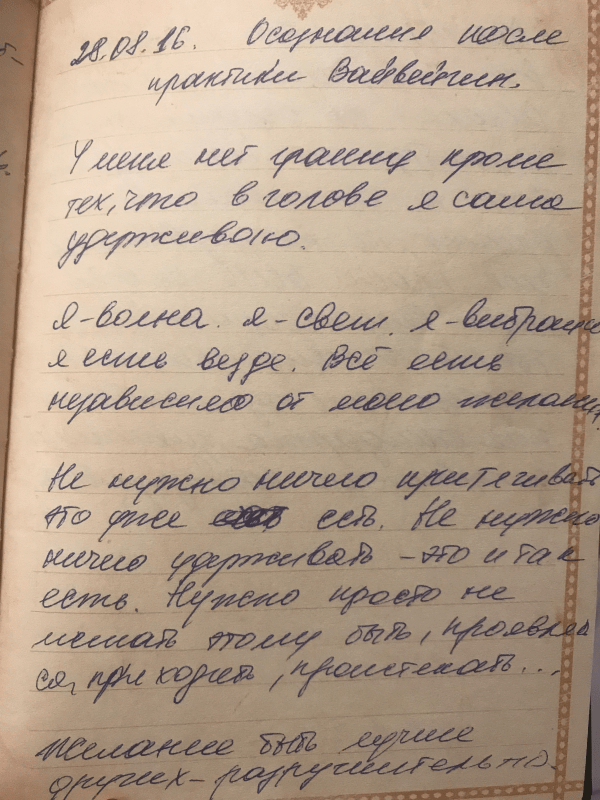 28.08.16. Осознания после
практики Вайвейшн.
У меня нет границ кроме
тех, что в голове я сама
удерживаю.
Я-волна. я-свет. я-вибрация
я есть везде. Всё есть
независимо от моего желания.
Не нужно ничего притягивать
это уже есть. Не нужно
ничего удерживать - это и так
есть. Нужно просто не
мешать этому быть, проявлять
ся, приходить, проистекать...
Желание быть лучше
других - разрушительно.